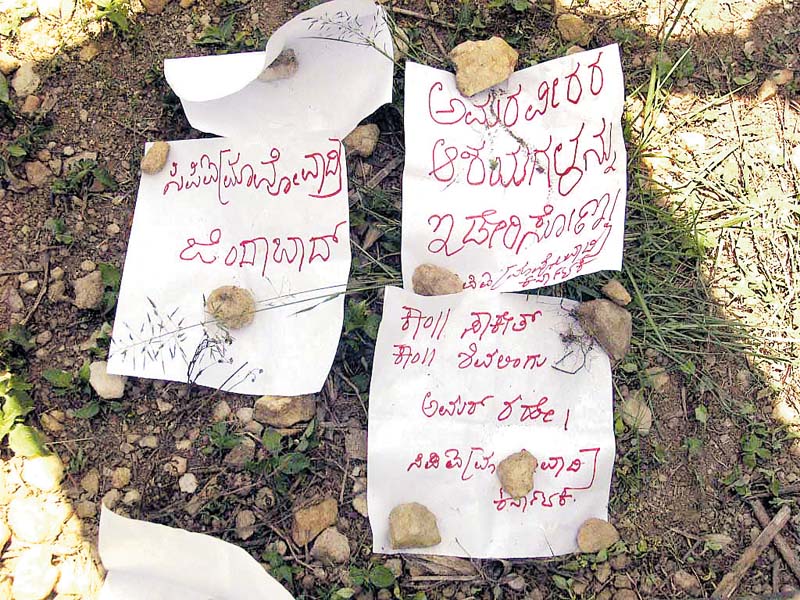 ಸಿಪಿಐ[ಮಾವೋವಾದಿ]
ಜಿಂದಾಬಾದ್
ಅಮರ ವೀರರ
ಆಶಯಗಳನ್ನು
ಇಡೇರಿಸೋಣ!
ಕರ್ನಾಟಕ
ಕಾಂ|| ಸಾಕೇತ್
ಕಾಂ|| ಶಿವಲಿಂಗು
ಅಮರ್ ರಹೇ!
ಸಿಪಿಐ[ಮಾ ವಾದಿ]
ಕರ್ನಾಟಕ.